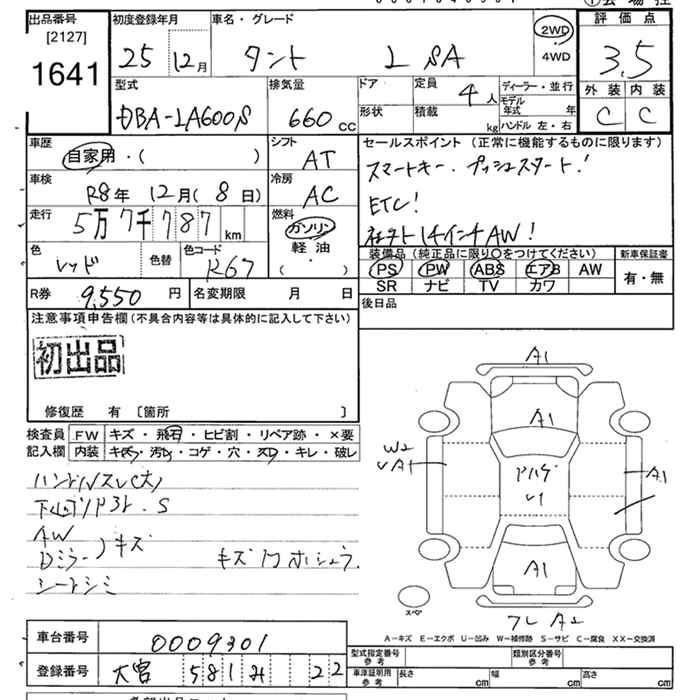 出品番号
[2127]
1641
初度登録年月
25 12月
車名・グレード
タント L SA
2WD
4WD
評価点
3.5
外装 内装
C C
型式
DBA-LA600S
排気量
660 cc
ドア
形状
定員
4人
積載
kg
ディーラー・並行
モデル年式 年
ハンドル 左・右
車歴
自家用・( )
シフト
AT
車検
R8年 12月(8日)
冷房
AC
走行
5万7千787 km
燃料
ガソリン
軽油
( )
色
レッド
色替
色コード
R67
R券 9,550円
名変期限 月 日
セールスポイント (正常に機能するものに限ります)
スマートキー・プッシュスタート!
ETC!
社外14インチAW!
装備品 (純正品に限り○をつけてください)
PS PW ABS エアB AW
SR ナビ TV カワ
新車保証書
有・無
後日品
注意事項申告欄(不具合内容等は具体的に記入して下さい)
初出品
修復歴 有 [箇所 ]
検査員記入欄
FW キズ・飛石・ヒビ割・リペア跡・×要
内装 キズ・汚れ・コゲ・穴・スレ・キレ・破レ
ハンドルスレ(大)
S
AW
Dミラー)キズ
シートシミ
A1
A1
W2
A1
A1
A1
スペア
A2
A-キズ E-エクボ U-凹み W-補修跡 S-サビ C-腐食 XX-交換済
車台番号 0009301
登録番号 大宮 581 み 22
型式指定番号 参考
類別区分番号 参考
車庫証明用 参考 長さ cm 幅 cm 高さ cm